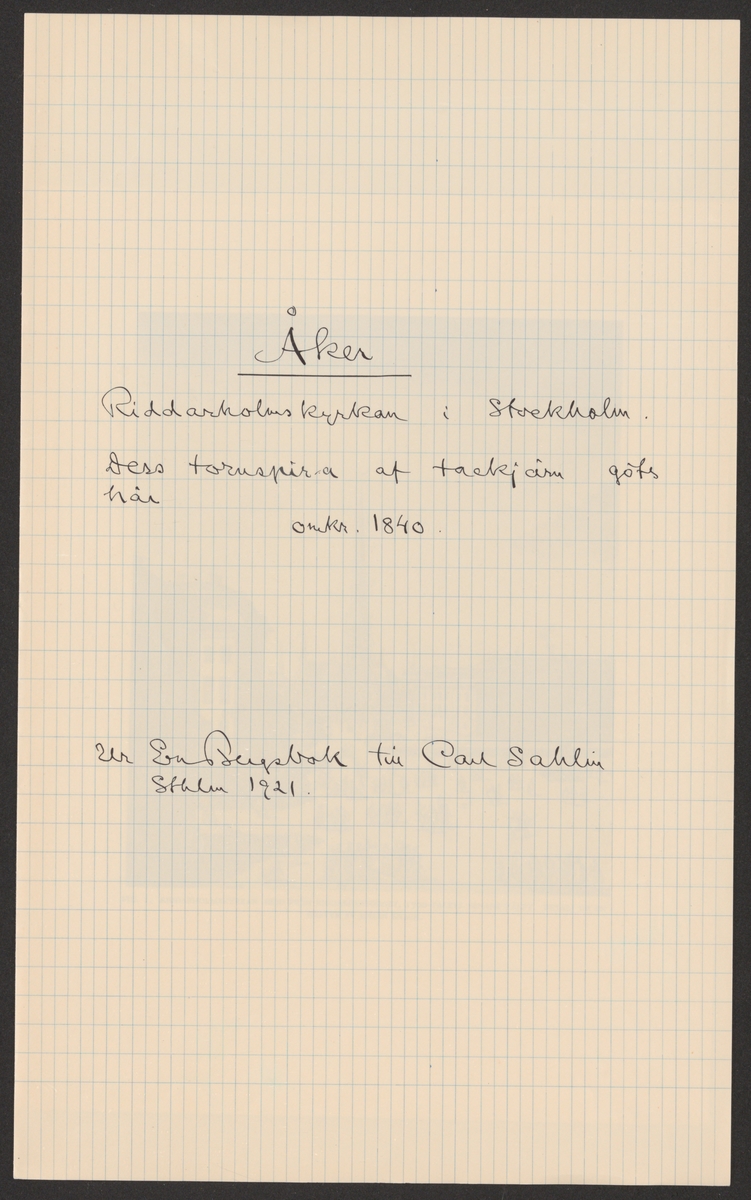 Åker
Riddarholmskyrkan i Stockholm.
Dess tornspira af tackjärn göts
här
omkr. 1840.
Ur En Bergsbok till Carl Sahlin
Sthlm 1921.